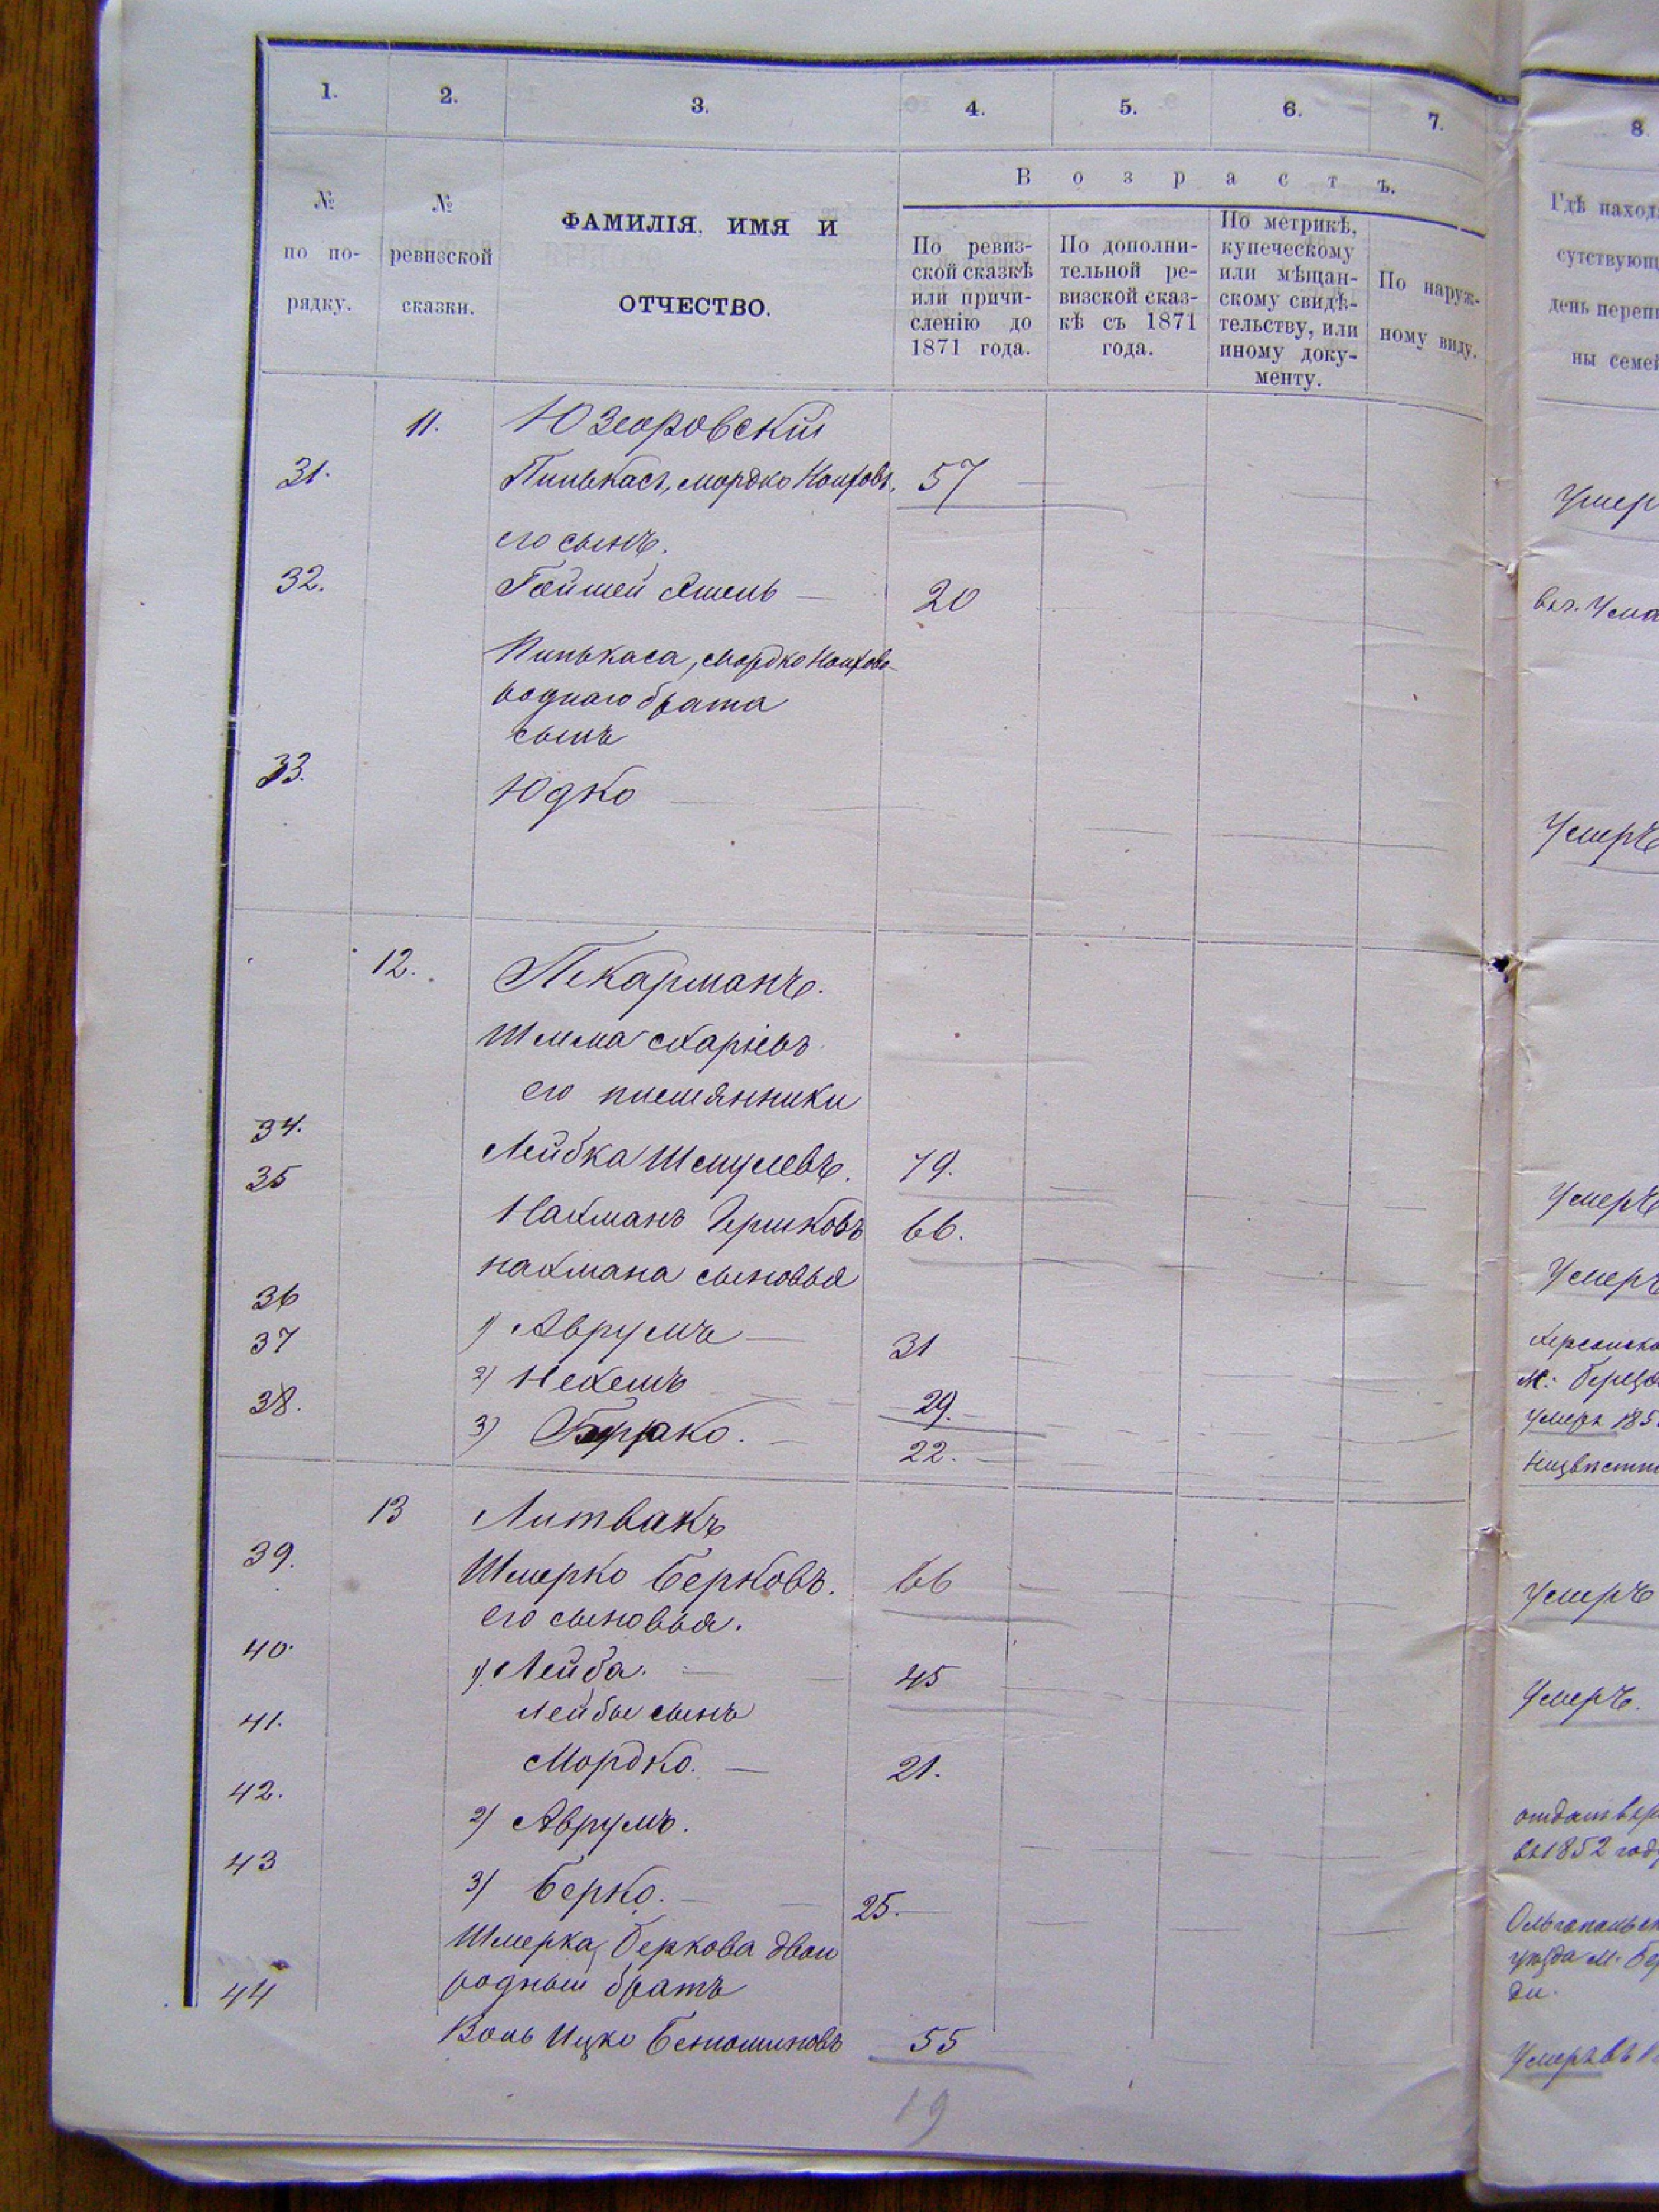 1. 2. 3. 4. 5. 6. 7. 8.
В о з р а с т ъ.
№ по по-рядку.
№ ревизской сказки.
ФАМИЛІЯ, ИМЯ И
ОТЧЕСТВО.
По ревиз-
ской сказкѣ
или причи-
сленію до
1871 года.
По дополни-
тельной ре-
визской сказ-
кѣ съ 1871
года.
По метрикѣ,
купеческому
или мѣщан-
скому свидѣ-
тельству, или
иному доку-
менту.
По наруж-
ному виду.
Гдѣ наход
сутствующ
день переп
ны семей
11.
31. Пинькасъ, Мордко 57 Умер
его сынъ.
32. 20
Пинькаса, Мордко
роднаго брата
сынъ
33. Юдко Умеръ
12. Пекарманъ.
Шлема
его племянники
34. Лейбка Шмулевъ. 79. Умеръ
35 Нахманъ Гершковъ 66. Умеръ
Нахмана сыновья
36 1) Аврумъ 31 Херсонско
м.
37 2) 29. Умеръ 185
38. 3) 22. Неизвѣстн
13 Литвакъ
39. Шмерко Берковъ. 66 Умеръ
его сыновья.
40. 1) Лейба. 45 Умеръ.
Лейбы сынъ
41. Мордко. 21.
42. 2) Аврумъ. отданъ въ р
въ 1852 году
43 3) Берко. 25. Ольгопольск
уѣзда м. Бер
ди.
Шмерка Беркова двою
родный брат
44 Ицко Беньоминовъ 55 Умеръ въ
19